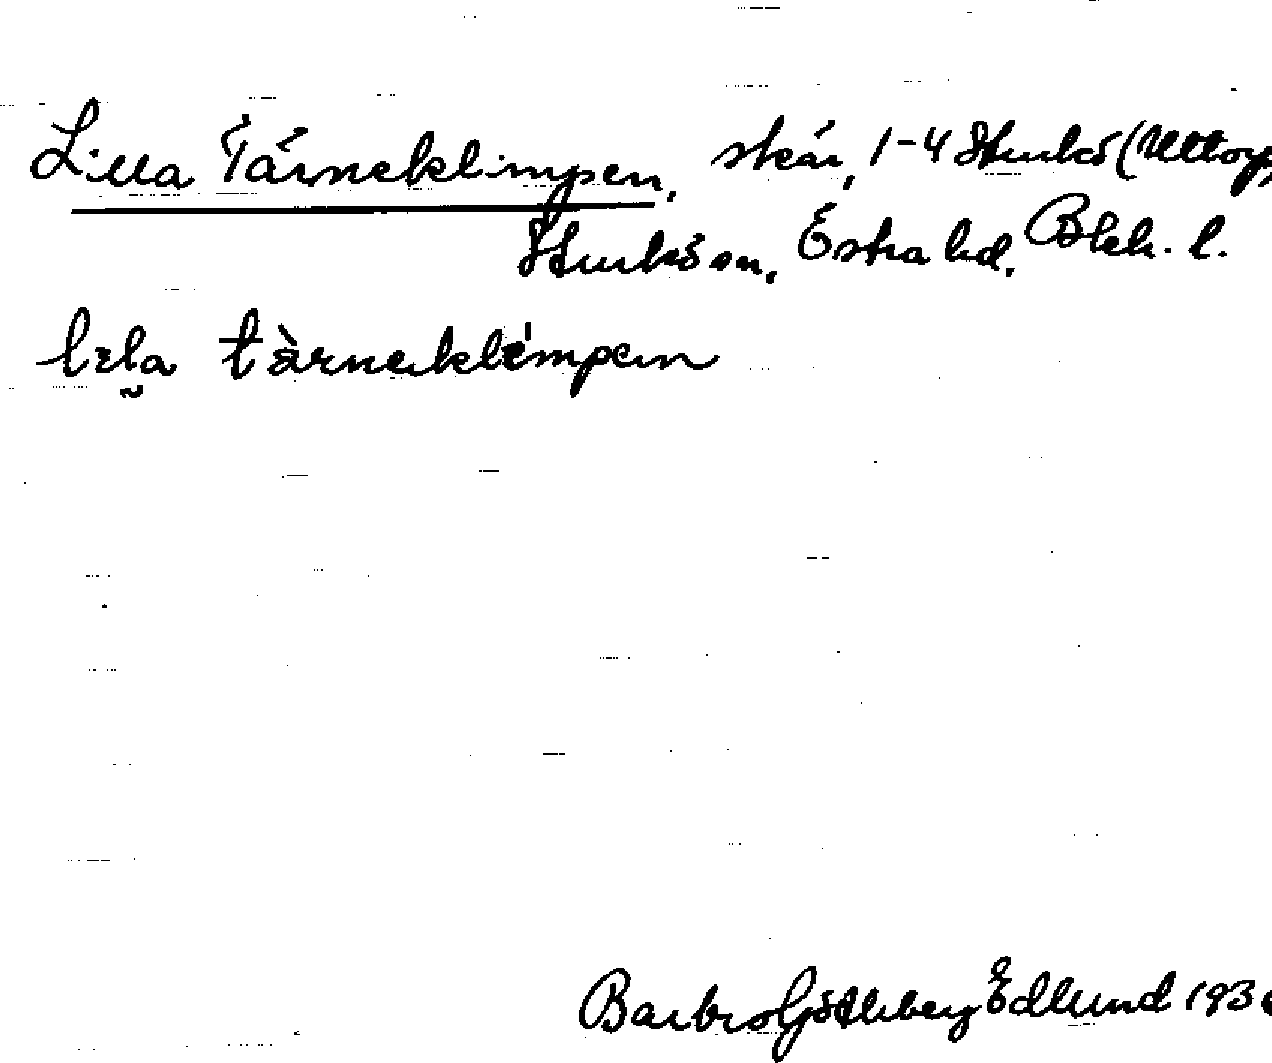 Lilla Tärneklimpen, skär, 1-4 Sturkö (Uttorp)
Sturkö sn, Östra hd, Blek. l.
lila tàrneklémpen
Barbro Götheberg Edlund 193